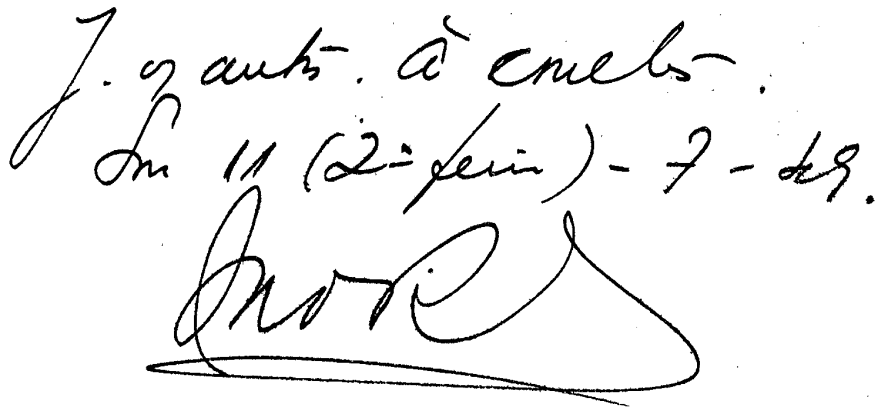 J. os autos. À concls.
Em 11 (2ª feira) - 7 - 49.